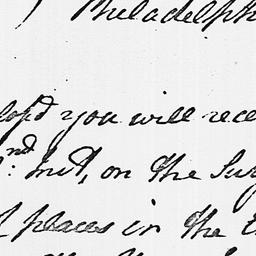 Philadelph
los'd you will rece
nd: Inst, on the Sub
f places in the E